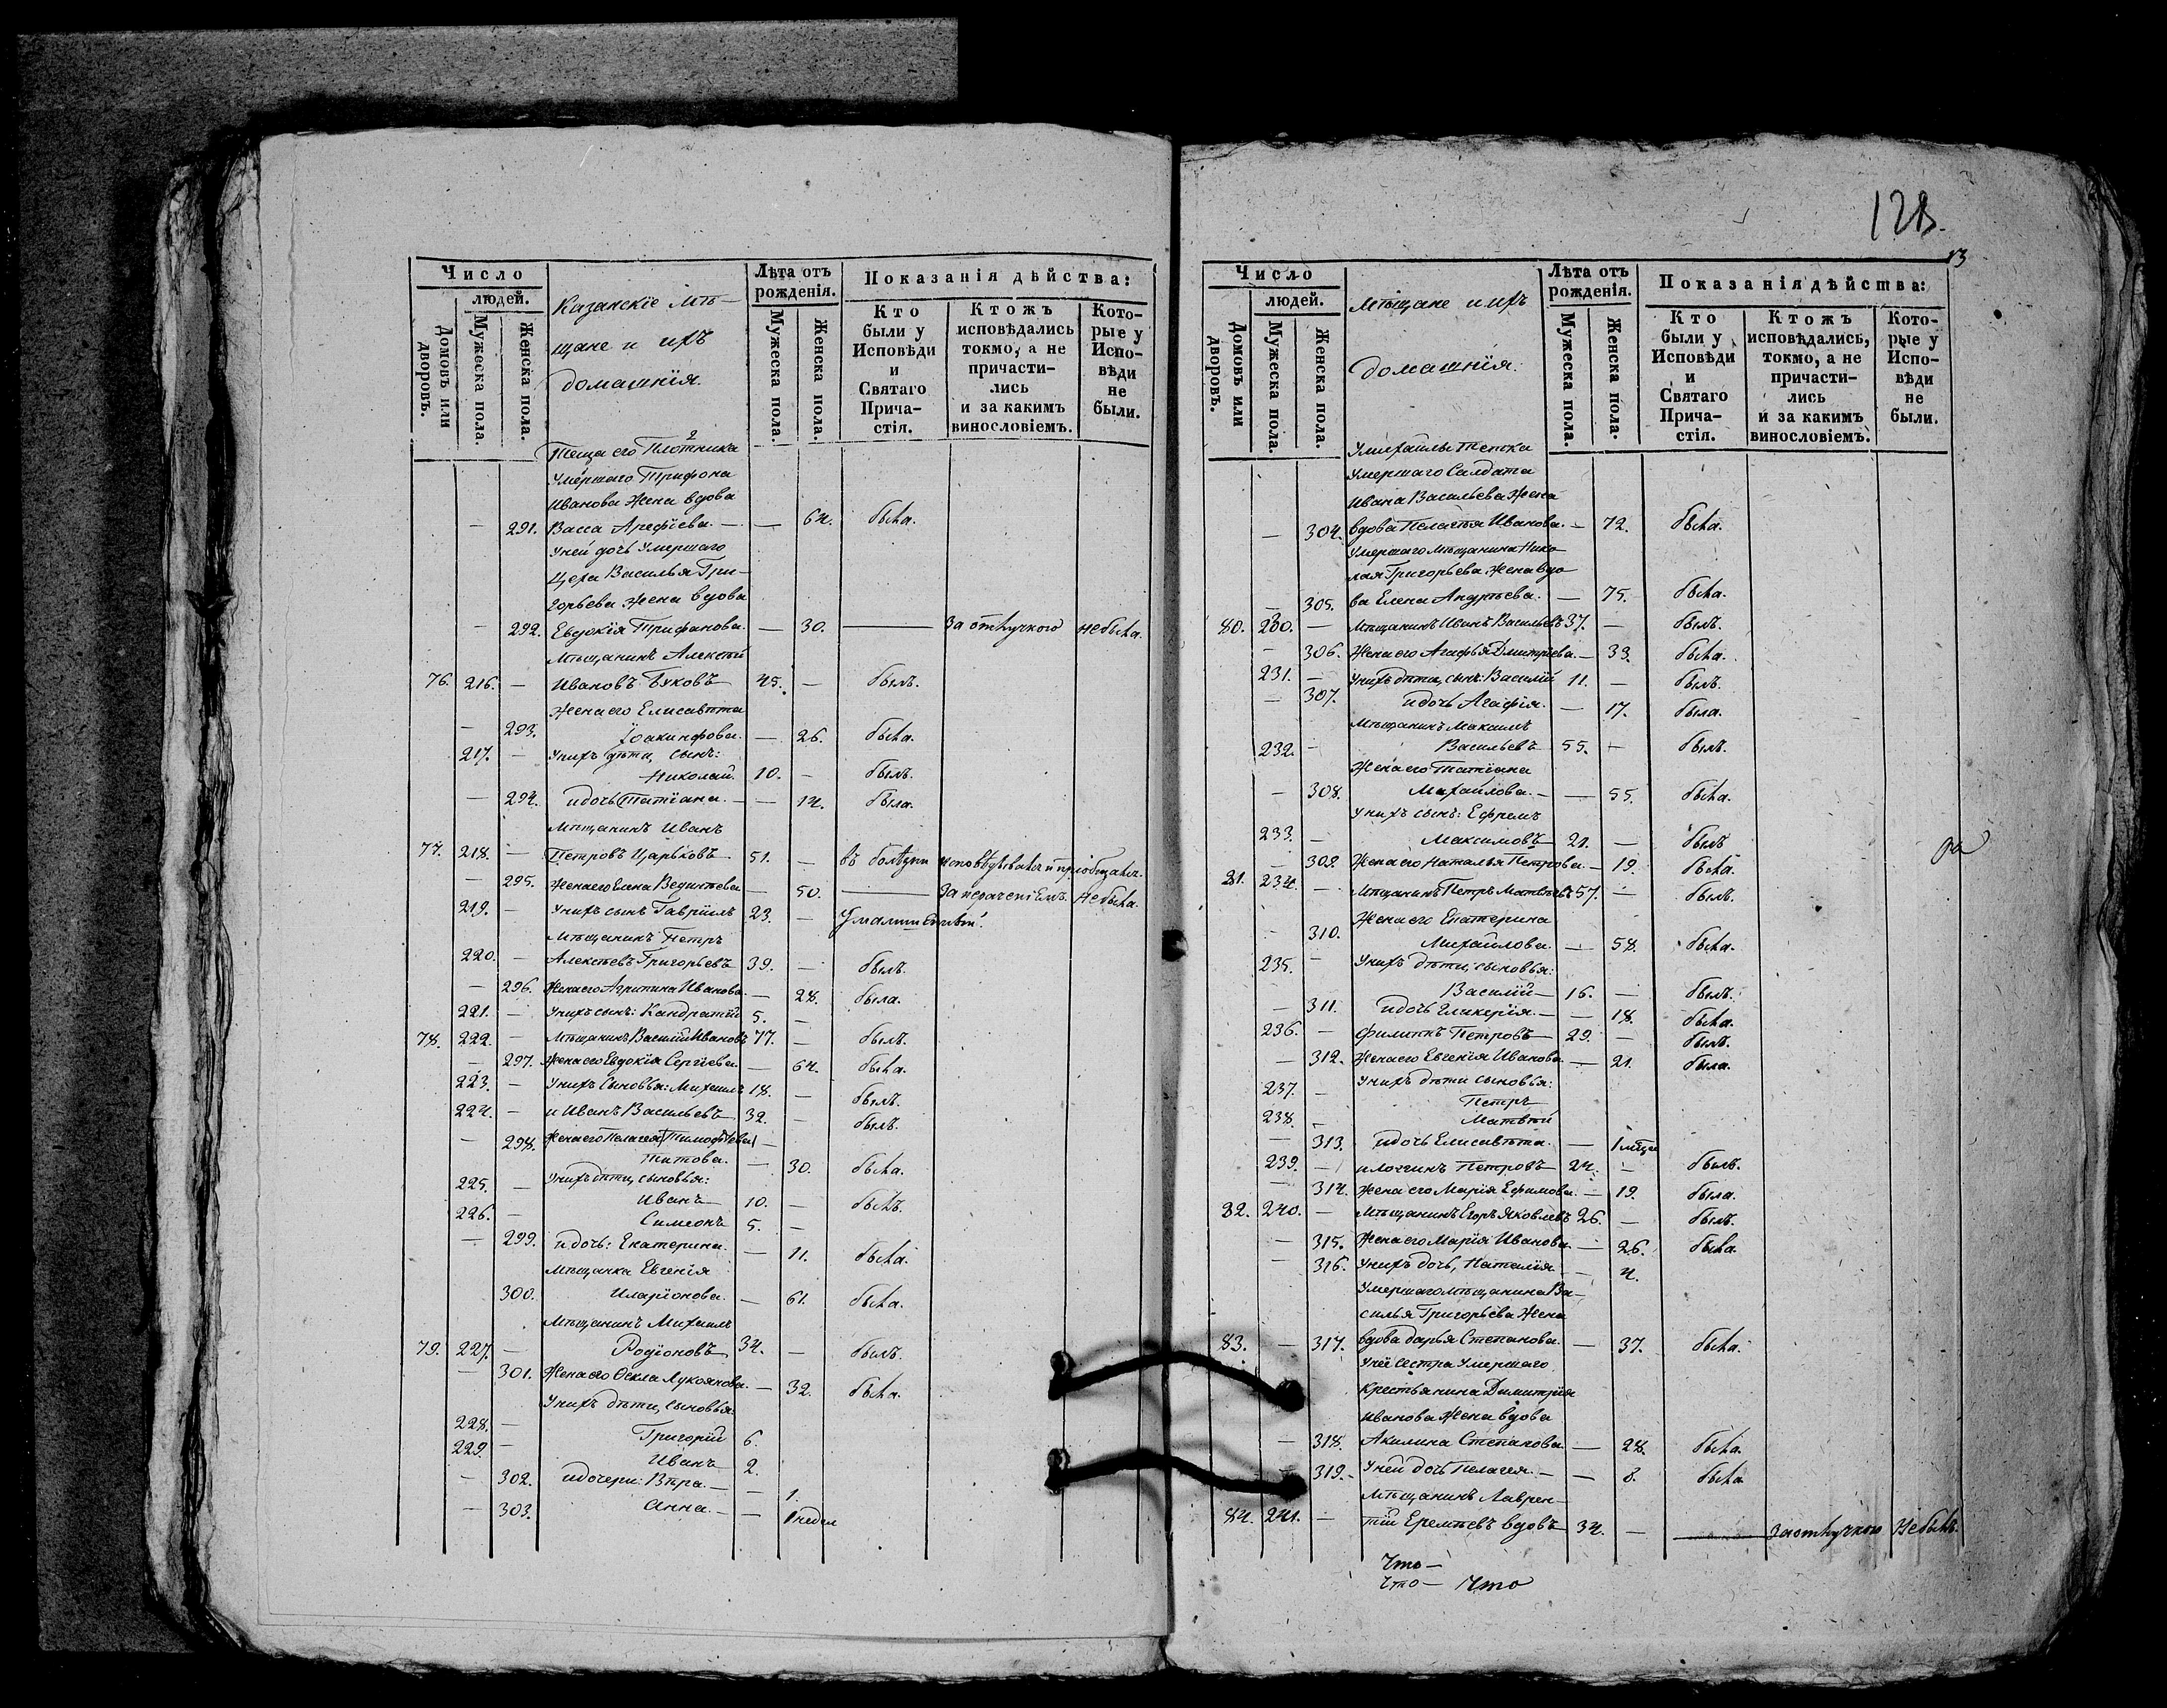 Число
людей.
Домовъ или дворовъ.
Мужеска пола.
Женска пола.
Казанскіе мѣ-
щане и ихъ
домашнія.
Лѣта отъ
рожденія.
Мужеска пола.
Женска пола.
Показанія дѣйства:
Кто были у Исповѣди и Святаго Прича-стія.
Ктожъ исповѣдались токмо, а не причасти-лись и за какимъ винословіемъ.
Кото-рые у Испо-вѣди не были.
Теща его Плотника
умершаго Трифона
Иванова жена вдова
— 291. Васса Арефіева. — — 64. была.
У ней дочь умершаго
Цеха Василья Гри-
горьева жена вдова
— 292. Евдокія Трифанова. — 30. — За отлучкою не была.
Мѣщанинъ Алексѣй
76. 216. — Ивановъ Буковъ 45. — былъ.
Жена его Елисавѣта
— 293. Іоакинфова. — 26. была.
217. — У нихъ дѣти, сынъ:
Николай. 10. — былъ.
— 294. и дочь Татіана. — — 14. была.
Мѣщанинъ Иванъ
77. 218. — Петровъ Царьковъ 51. — въ болѣзни исповѣдывался и пріобщался.
— 295. Жена его Елена — 50. — За нераченіемъ. не была.
219. — У нихъ сынъ Гавріилъ 23. —
Мѣщанинъ Петръ
220. — Алексѣевъ Григорьевъ 39. — былъ.
— 296. Жена его Агрипина Иванова. — 28. была.
221. — У нихъ сынъ: Кандратій 5. —
78. 222. — Мѣщанинъ Василій Ивановъ 77. — былъ.
— 297. Жена его Евдокія Сергіева. — 64. была.
223. — У нихъ сыновья: Михаилъ 18. — былъ.
224. — и Иванъ Васильевъ 32. — былъ.
— 298. Жена его Пелагея Тимофѣева —
Титова. — 30. была.
225. — У нихъ дѣти, сыновья:
Иванъ 10. — былъ.
226. — Симеонъ 5. —
— 299. и дочь: Екатерина. — 11. была.
Мѣщанка Евгенія
300. Иларіонова. — 61. была.
Мѣщанинъ Михаилъ
79. 227. — Родіоновъ 34. — былъ.
— 301. Жена его Ѳекла Лукоянова. — 32. была.
У нихъ дѣти, сыновья
228. — Григорій 6.
229. — Иванъ 2.
— 302. и дочери: Вѣра. — — 1.
— 303. Анна. — — 1 недел
128.
13
Число
людей.
Домовъ или дворовъ.
Мужеска пола.
Женска пола.
Мѣщане и ихъ
домашнія.
Лѣта отъ
рожденія.
Мужеска пола.
Женска пола.
Показанія дѣйства:
Кто были у Исповѣди и Святаго Прича-стія.
Ктожъ исповѣдались, токмо, а не причасти-лись и за какимъ винословіемъ.
Кото-рые у Испо-вѣди не были.
У Михайлы Тетка
умершаго Салдата
Ивана Васильева жена
— 304. вдова Пелагѣя Иванова. — 72. была.
умершаго мѣщанина Нико-
лая Григорьева жена вдо
— 305. ва Елена Андрѣева. — 75. была.
80. 230. — Мѣщанинъ Иванъ Васильевъ 37. — былъ.
— 306. Жена его Агафья Дмитріева. — 33. была.
231. — У нихъ дѣти, сынъ: Василій 11. — былъ.
— 307. и дочь Агафія. — 17. была.
Мѣщанинъ Максимъ
232. — Васильевъ 55. — былъ.
Жена его Татіана
— 308. Михайлова. — — 55. была.
У нихъ сынъ: Ефремъ
233. — Максимовъ 21. — былъ
— 309. Жена его Наталья Петрова — 19. была.
81. 234. — Мѣщанинъ Петръ Матвѣевъ 57. — былъ.
Жена его Екатерина
— 310. Михайлова. — 58. была.
235. — У нихъ дѣти, сыновья:
Василій — 16. — былъ.
— 311. и дочь Гликерія. — — 18. была.
236. — Филиппъ Петровъ — 29. — былъ.
— 312. Жена его Евгенія Иванова. — 21. была.
237. — У нихъ дѣти сыновья:
Петръ
238. — Матвѣй
— 313. и дочь Елисавѣта. — 1 мѣсц
239. — и Логгинъ Петровъ 24. — былъ.
— 314. Жена его Марія Ефимова. — 19. была.
82. 240. — Мѣщанинъ Егоръ Яковлевъ 26. — былъ.
— 315. Жена его Марія Иванова. — 26. была.
— 316. У нихъ дочь, Наталія — — 4.
Умершаго мѣщанина Ва-
силья Григорьева жена
83. — 317. вдова Дарья Степанова. — 37. была.
У ней сестра умершаго
крестьянина Димитрія
Иванова жена вдова
— 318. Акилина Степанова. — 28. была.
— 319. У ней дочь Пелагея. — — 8. была
Мѣщанинъ Лаврен-
84. 241. — тій Еремѣевъ вдовъ 34. — — За отлучкою не былъ.
Что —
Что — Что